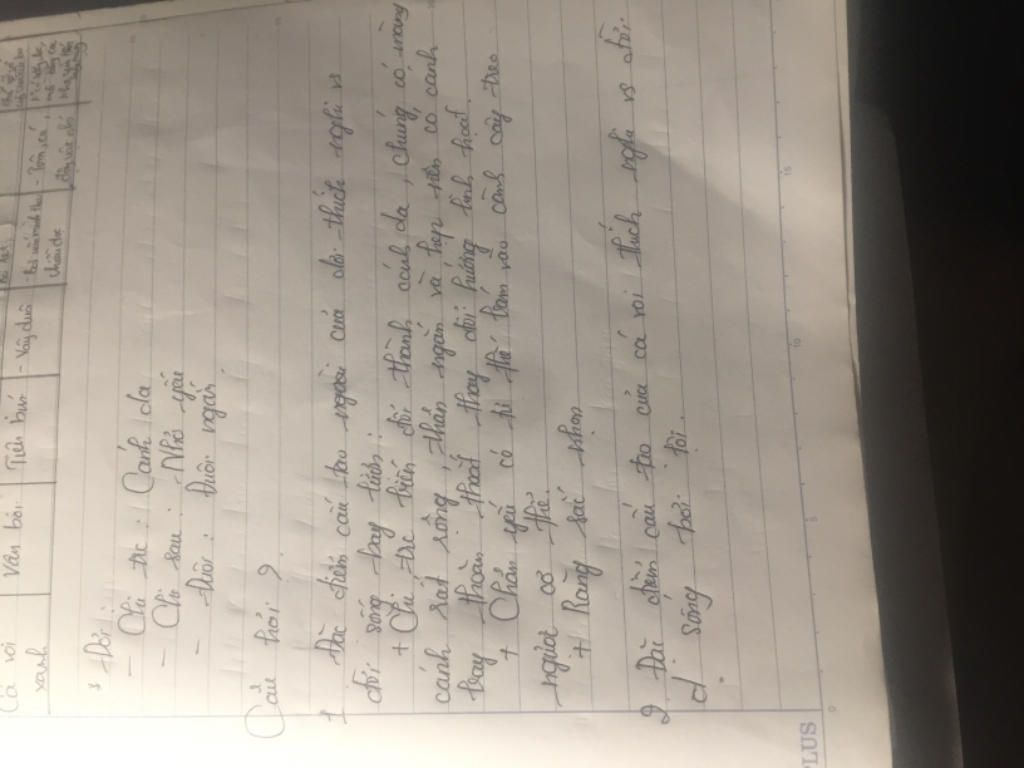 Cá voi xanh
Vây bơi
Tiêu biến
- Vây đuôi
chân che
* Dơi:
- Chi trc : Cánh da
- Chi sau : Nhỏ yếu
- Đuôi : Đuôi ngắn
Câu hỏi ?
1 Đặc điểm cấu tạo ngoài của dơi thích nghi vs
đời sống bay lượn:
+ Chi trc biến đổi thành cánh da, chúng có màng
cánh rất rộng, thân ngắn và hẹp nên có cánh
bay thoăn thoắt thay đổi hướng linh hoạt.
+ Chân yếu có tư thế bám vào cành cây treo
ngược cơ thể.
+ Răng sắc nhọn
2 Đặc điểm cấu tạo của cá voi thích nghi vs đời
sống bơi lội.
PLUS
0
5
10
15